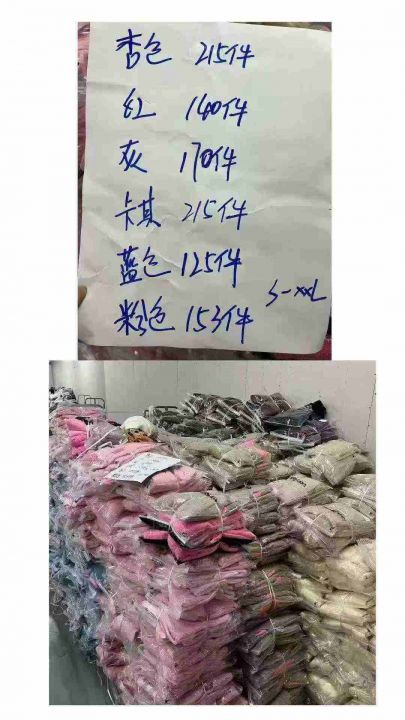 杏色 215件
红 140件
灰 170件
卡其 215件
蓝色 125件
粉色 153件
S-XXL